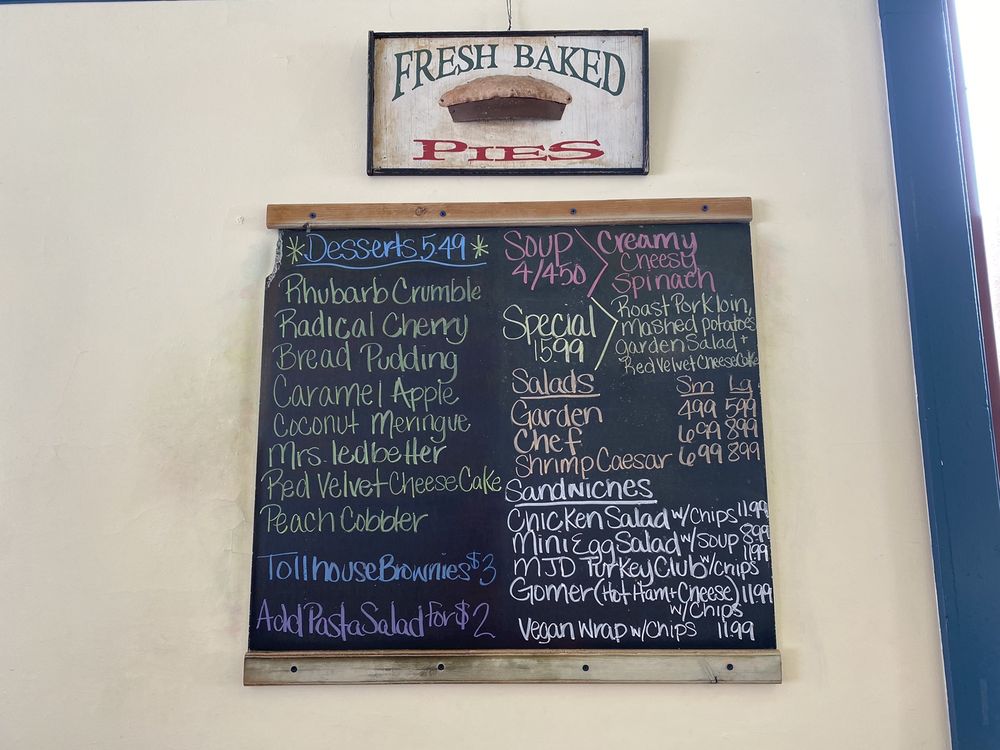 FRESH BAKED
PIES
*Desserts 5.49*
Rhubarb Crumble
Radical Cherry
Bread Pudding
Caramel Apple
Coconut Meringue
Mrs. ledbetter
Red Velvet Cheese Cake
Peach Cobbler
Tollhouse Brownies $3
Add Pasta Salad for $2
Soup
4/450
Creamy
Cheesy
Spinach
Special
15.99
Roast Pork loin,
mashed potatoes
garden Salad +
Red Velvet Cheese Cake
Salads Sm Lg
Garden 499 599
Chef 699 899
Shrimp Caesar 699 899
Sandwiches
Chicken Salad w/chips 11.99
Mini Egg Salad w/soup 899
MJD Turkey Club w/chips 11.99
Gomer (Hot Ham + Cheese) 11.99
w/chips
Vegan Wrap w/chips 11.99